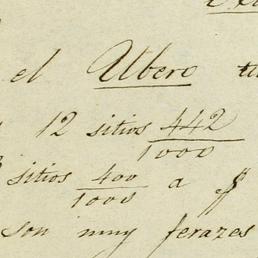 el Ubero
12 sitios 442/1000
sitios 400/1000 a $
son muy feraces